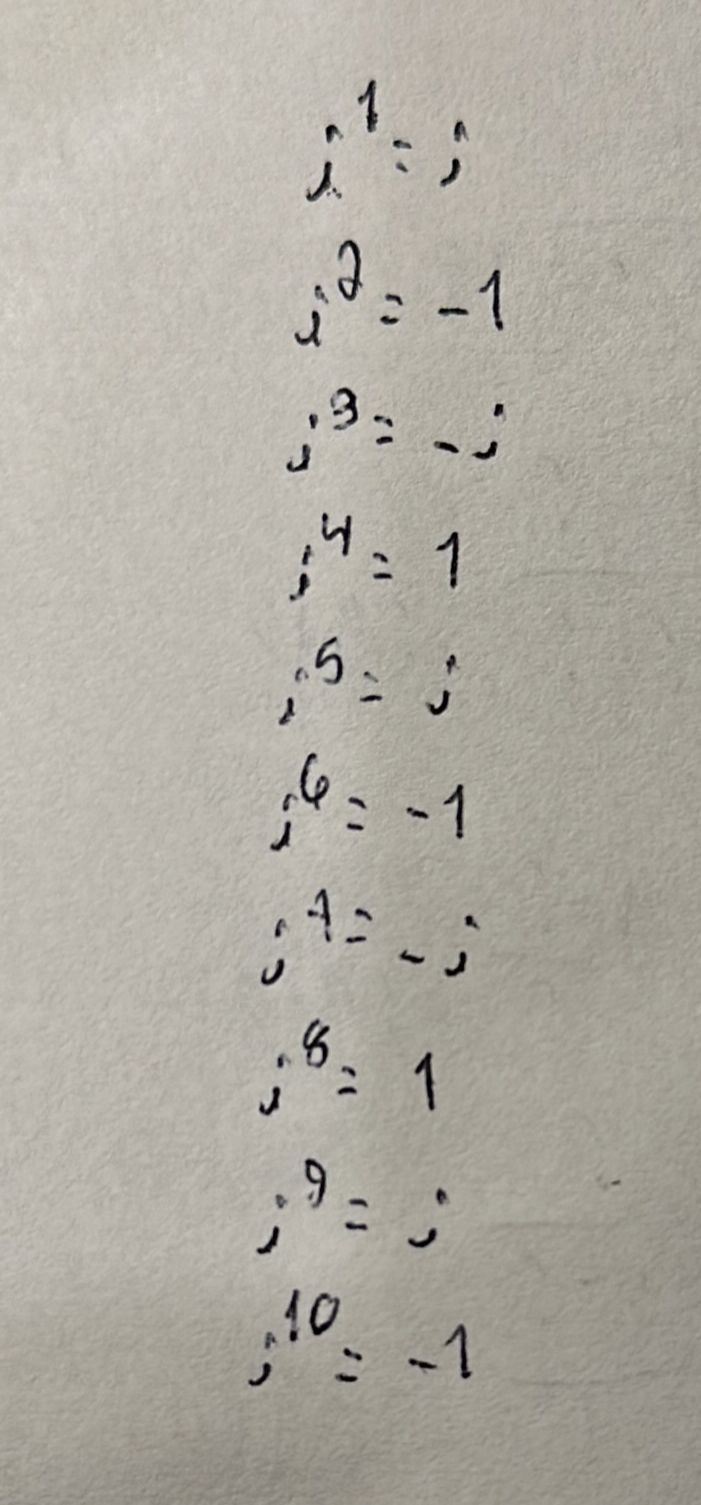 i¹ = i
i² = -1
i³ = -i
i⁴ = 1
i⁵ = i
i⁶ = -1
i⁷ = -i
i⁸ = 1
i⁹ = i
i¹⁰ = -1